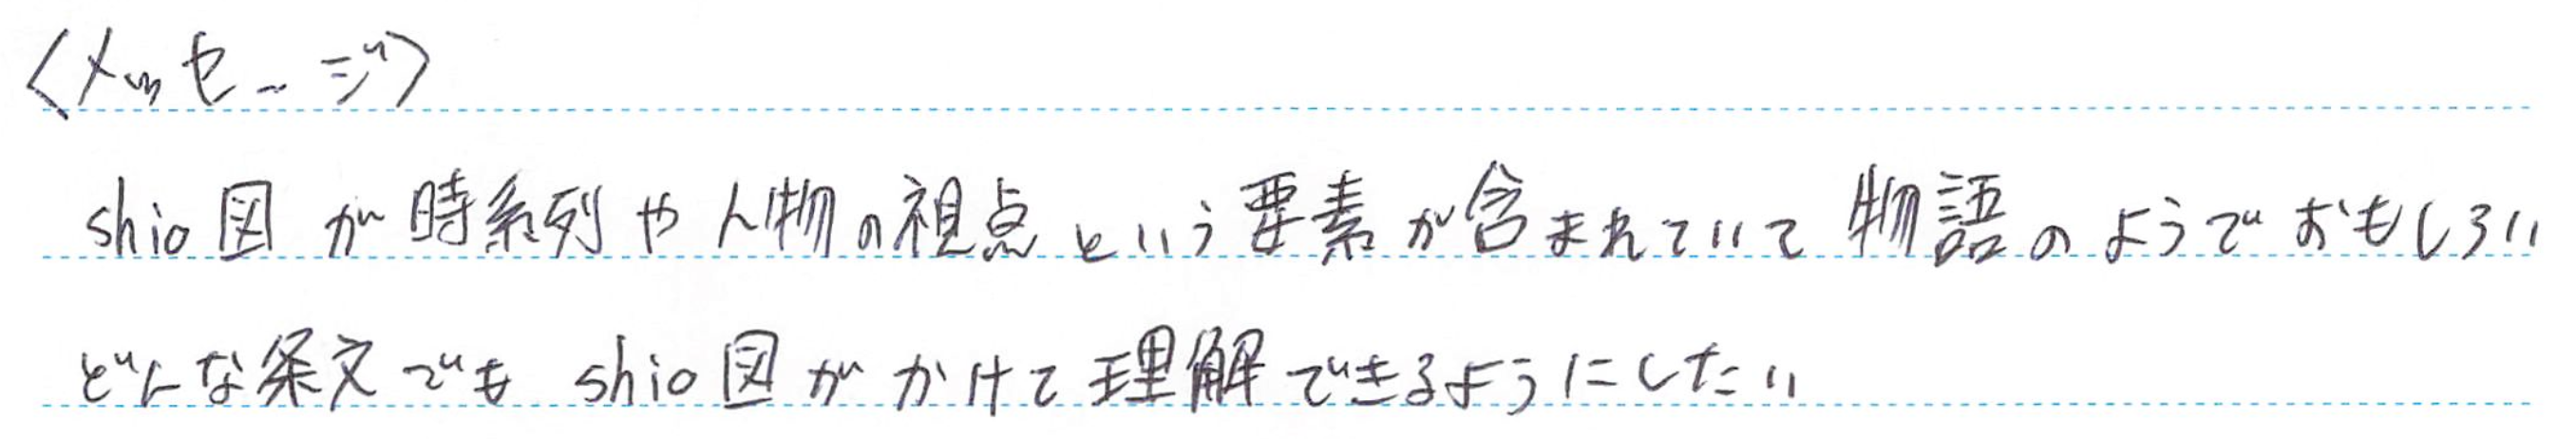 〈メッセージ〉
shio図が時系列や人物の視点という要素が含まれていて物語のようでおもしろい
どんな条文でもshio図がかけて理解できるようにしたい